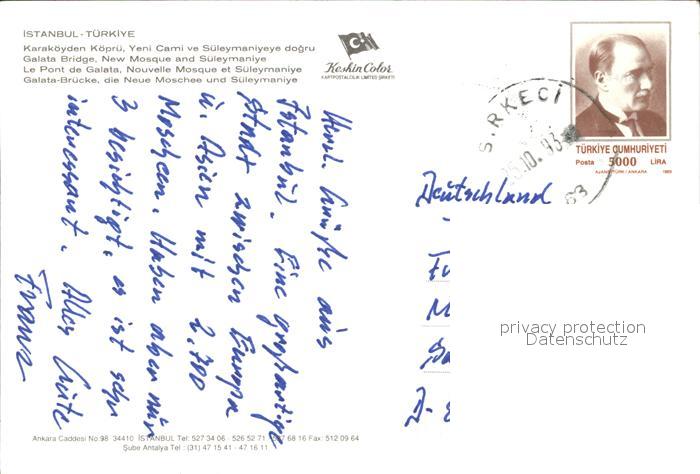 İSTANBUL - TÜRKİYE
Karaköyden Köprü, Yeni Cami ve Süleymaniyeye doğru
Galata Bridge, New Mosque and Süleymaniye
Le Pont de Galata, Nouvelle Mosque et Süleymaniye
Galata-Brücke, die Neue Moschee und Süleymaniye
Keskin Color
KARTPOSTALCILIK LIMITED ŞİRKETİ
SİRKECİ
10.93
TÜRKİYE CUMHURİYETİ
Posta 5000 LİRA
AJANS-TÜRK / ANKARA
Herzl. Grüße aus
Istanbul. Eine großartige
Stadt zwischen Europa
u. Asien mit 2.700
Moscheen. Haben aber nur
3 besichtigt, es ist sehr
interessant. Alles Gute
Franz
Deutschland
D-
privacy protection
Datenschutz
Ankara Caddesi No:98 34410 İSTANBUL Tel: 527 34 06 - 526 52 71 - 527 68 16 Fax: 512 09 64
Şube Antalya Tel: (31) 47 15 41 - 47 16 11